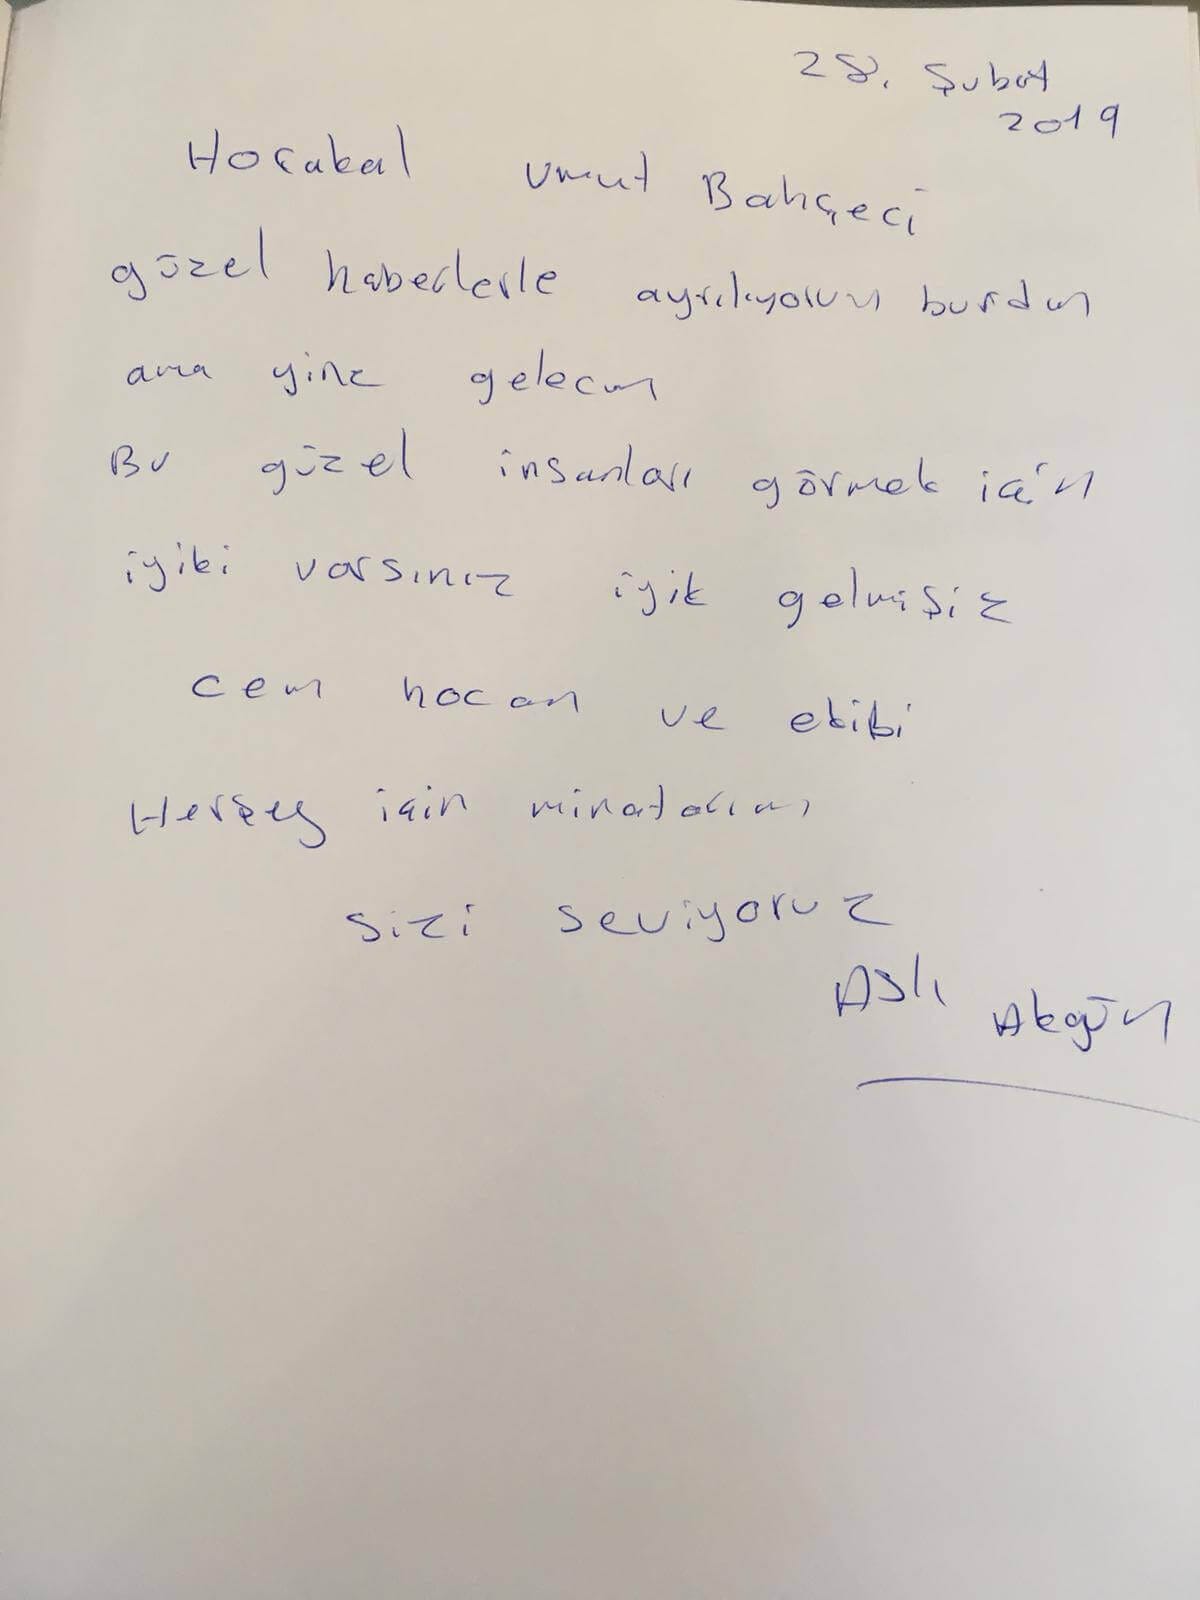 28. Şubat
2019
Hoçakal Umut Bahçeci
güzel haberlerle ayrılıyorum burdan
ama yine gelecem
Bu güzel insanları görmek için
iyiki varsınız iyik gelmişiz
cem hocam ve ekibi
Herşey için minatarım
sizi seviyoruz
Aslı Akgün